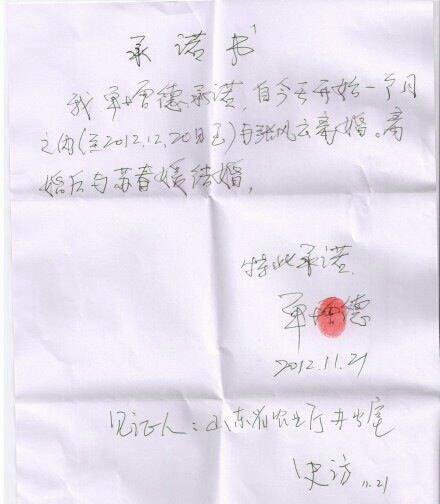 承诺书
我单增德承诺,自今天开始一个月
之内(至2012.12.20日止)与张风云离婚。离
婚后与苏春媛结婚,
特此承诺.
单增德
2012.11.21
见证人:山东省农业厅办公室
史访 11.21